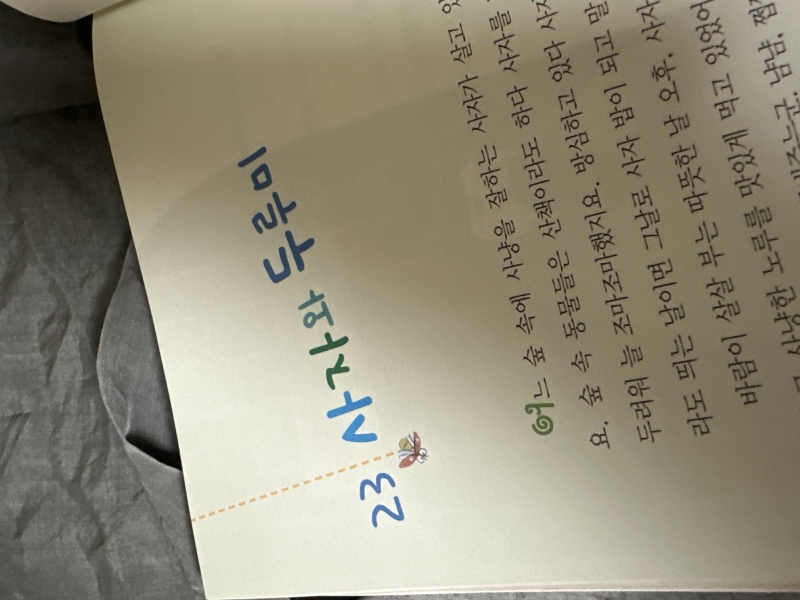 23 사자와 두루미
어느 숲 속에 사냥을 잘하는 사자가 살고
요. 숲 속 동물들은 산책이라도 하다 사자를
두려워 늘 조마조마했지요. 방심하고 있다 사자
라도 띄는 날이면 그날로 사자 밥이 되고 말
바람이 살살 부는 따뜻한 날 오후, 사자
사냥한 노루를 맛있게 먹고 있었어
냠냠,